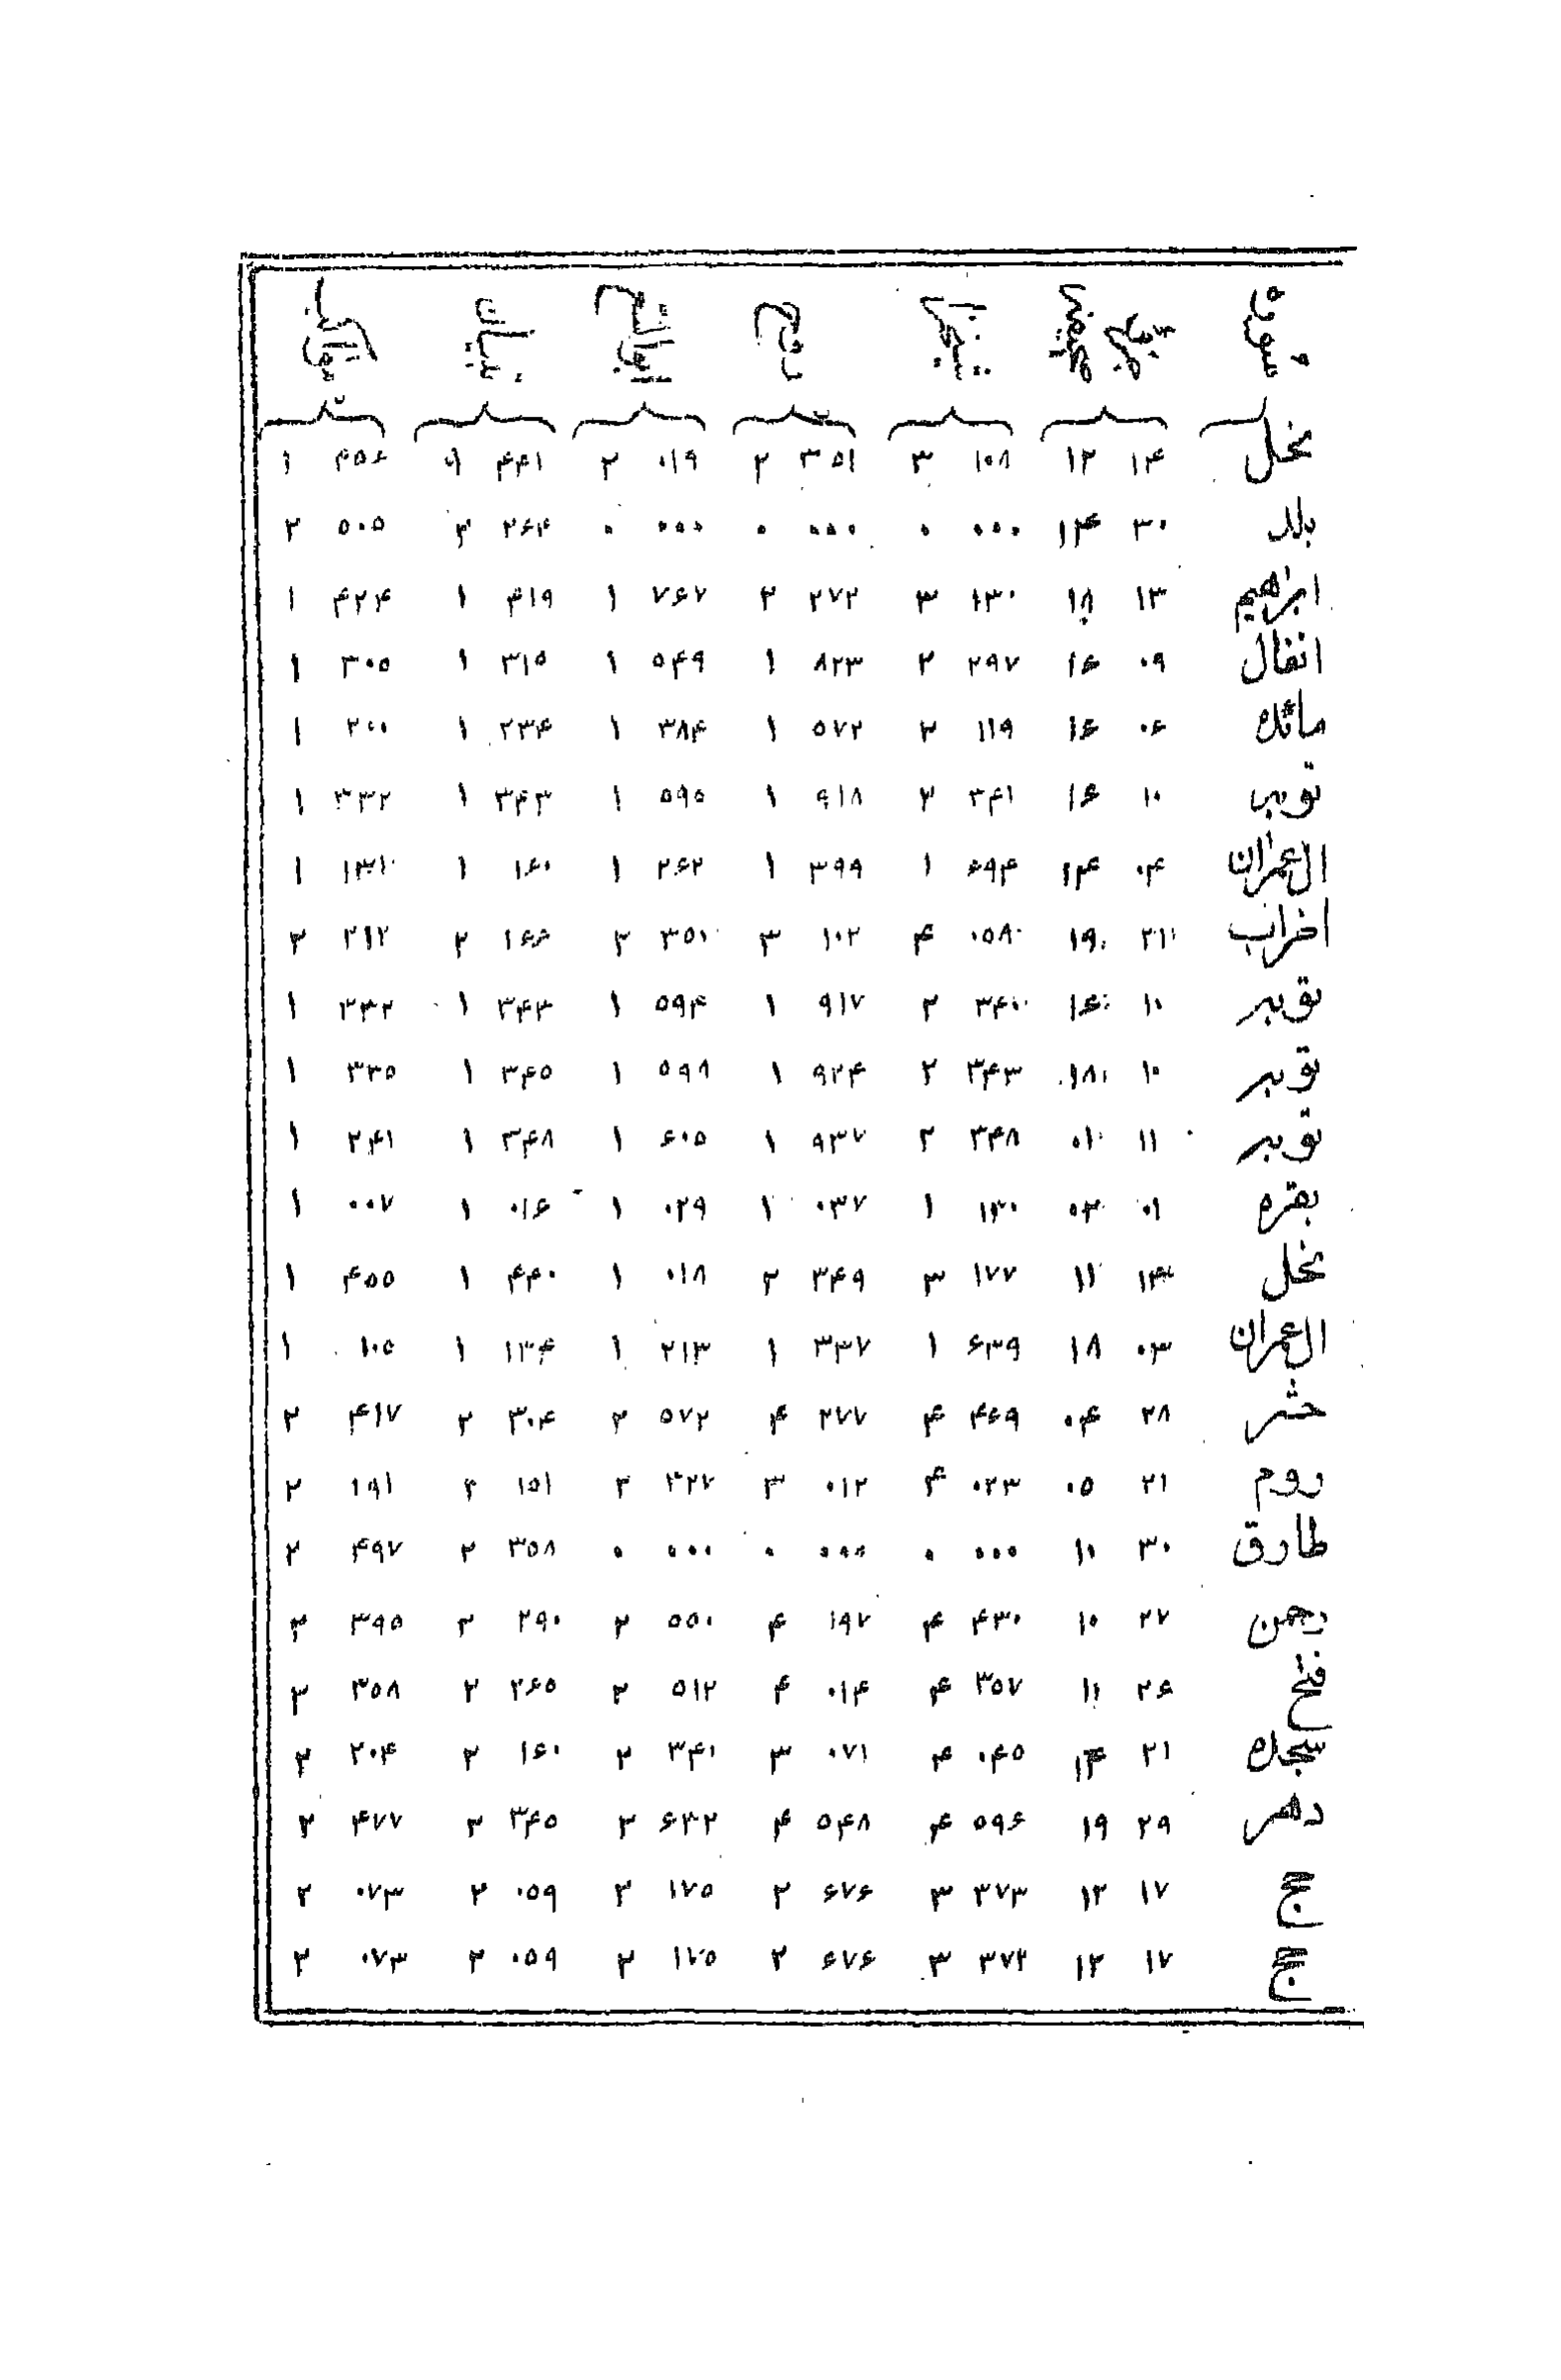 نحل ۱۴ ۱۲ ۱۰۸ ۳ ۳۵۱ ۲ ۰۱۹ ۲ ۴۴۱ ۱ ۴۵۶ ۱
بلد ۳۰ ۱۴ ۰۰۰ ۰ ۰۰۰ ۰ ۰۰۰ ۰ ۲۶۴ ۲ ۵۰۵ ۲
ابراهیم ۱۳ ۱۸ ۱۳۰ ۳ ۲۷۲ ۲ ۷۶۷ ۱ ۴۱۹ ۱ ۴۲۴ ۱
انفال ۰۹ ۱۶ ۲۹۷ ۲ ۸۲۳ ۱ ۵۴۹ ۱ ۳۱۵ ۱ ۳۰۵ ۱
مائده ۰۶ ۱۶ ۱۱۹ ۲ ۵۷۲ ۱ ۳۸۴ ۱ ۲۳۴ ۱ ۲۰۰ ۱
توبه ۱۰ ۱۶ ۳۴۱ ۲ ۹۱۸ ۱ ۵۹۵ ۱ ۳۴۳ ۱ ۳۳۲ ۱
ال عمران ۰۴ ۱۴ ۶۹۴ ۱ ۳۹۹ ۱ ۲۶۲ ۱ ۱۶۰ ۱ ۱۳۱ ۱
احزاب ۲۱ ۱۹ ۰۵۸ ۴ ۱۰۲ ۳ ۳۵۱ ۲ ۱۶۶ ۲ ۲۱۲ ۲
توبه ۱۰ ۱۶ ۳۴۰ ۲ ۹۱۷ ۱ ۵۹۴ ۱ ۳۴۳ ۱ ۳۳۲ ۱
توبه ۱۰ ۱۸ ۳۴۳ ۲ ۹۲۴ ۱ ۵۹۸ ۱ ۳۴۵ ۱ ۳۳۵ ۱
توبه ۱۱ ۰۱ ۳۴۸ ۲ ۹۳۷ ۱ ۶۰۵ ۱ ۳۴۸ ۱ ۲۴۱ ۱
بقره ۰۱ ۰۳ ۱۳۰ ۱ ۰۳۷ ۱ ۰۲۹ ۱ ۰۱۶ ۱ ۰۰۷ ۱
نحل ۱۴ ۱۱ ۱۷۷ ۳ ۳۴۹ ۲ ۰۱۸ ۱ ۴۴۰ ۱ ۴۵۵ ۱
ال عمران ۰۳ ۱۸ ۶۳۹ ۱ ۳۳۷ ۱ ۲۱۳ ۱ ۱۳۴ ۱ ۱۰۵ ۱
حشر ۲۸ ۰۴ ۴۶۹ ۴ ۲۷۷ ۴ ۵۷۲ ۲ ۳۰۴ ۲ ۴۱۷ ۲
روم ۲۱ ۰۵ ۰۲۳ ۴ ۰۱۲ ۳ ۳۲۷ ۲ ۱۵۱ ۲ ۱۹۱ ۲
طارق ۳۰ ۱۰ ۰۰۰ ۰ ۰۰۰ ۰ ۰۰۰ ۰ ۳۵۸ ۲ ۴۹۷ ۲
رحمن ۲۷ ۱۰ ۴۳۰ ۴ ۱۹۷ ۴ ۵۵۰ ۲ ۲۹۰ ۲ ۳۹۵ ۲
فتح ۲۶ ۱۱ ۳۵۷ ۴ ۰۱۴ ۴ ۵۱۲ ۲ ۲۶۵ ۲ ۳۵۸ ۲
سجده ۲۱ ۱۴ ۰۴۵ ۴ ۰۷۱ ۳ ۳۴۱ ۲ ۱۶۰ ۲ ۲۰۴ ۲
دهر ۲۹ ۱۹ ۵۹۶ ۴ ۵۴۸ ۴ ۶۳۲ ۲ ۳۴۵ ۲ ۴۷۷ ۲
حج ۱۷ ۱۲ ۳۷۳ ۳ ۶۷۶ ۲ ۱۷۵ ۲ ۰۵۹ ۲ ۰۷۳ ۲
حج ۱۷ ۱۲ ۳۷۲ ۳ ۶۷۶ ۲ ۱۷۵ ۲ ۰۵۹ ۲ ۰۷۳ ۲